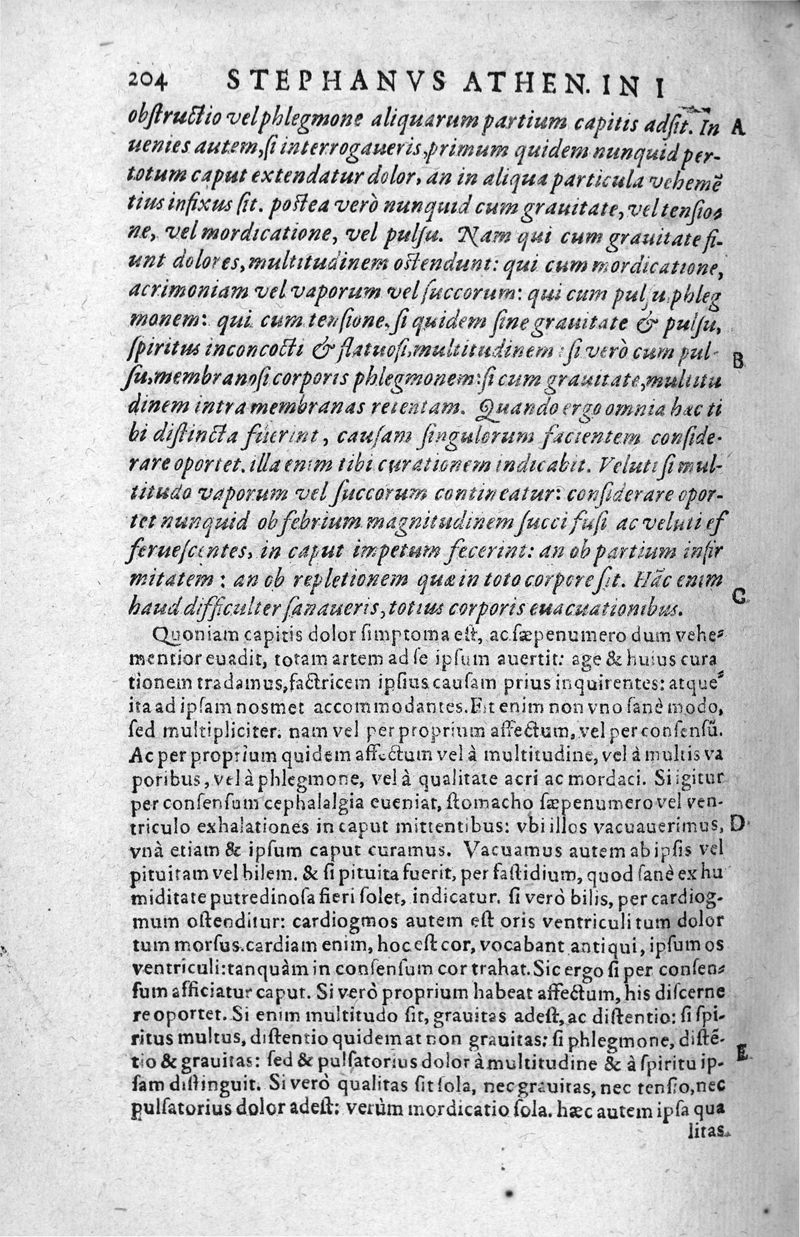 204 STEPHANVS ATHEN. IN I
obſtructio vel phlegmone aliquarum partium capitis adſit. In A
uenies autem, ſi interrogaueris, primum quidem nunquid per-
totum caput extendatur dolor, an in aliqua particula vehemẽ
tius infixus ſit. poſtea verò nunquid cum grauitate, vel tenſio⸗
ne, vel mordicatione, vel pulſu. Nam qui cum grauitate fi-
unt dolores, multitudinem oſtendunt: qui cum mordicatione,
acrimoniam vel vaporum vel ſuccorum: qui cum pulſu, phleg
monem: qui cum tenſione, ſi quidem ſine grauitate & pulſu,
ſpiritus inconcocti & flatuoſi, multitudinem: ſi verò cum pul- B
ſu, membranoſi corporis phlegmonem: ſi cum grauitate, multitu
dinem intra membranas retentam. Quando ergo omnia hæc ti
bi diſtincta fuerint, cauſam ſingulorum facientem conſide-
rare oportet. illa enim tibi curationem indicabit. Veluti ſi mul-
titudo vaporum vel ſuccorum contineatur: conſiderare opor-
tet nunquid ob febrium magnitudinem ſucci fuſi ac veluti ef
ferueſcentes, in caput impetum fecerint: an ob partium infir
mitatem: an ob repletionem quæ in toto corpore ſit. Hãc enim C
haud difficulter ſanaueris, totius corporis euacuationibus.
Quoniam capitis dolor ſimptoma eſt, ac ſæpenumero dum vehe⸗
mentior euadit, totam artem ad ſe ipſum auertit: age & huius cura
tionem tradamus, factricem ipſius cauſam prius inquirentes: atque⸗
ita ad ipſam noſmet accommodantes. Fit enim non vno ſanè modo,
ſed multipliciter. nam vel per proprium affectum, vel per conſenſũ.
Ac per proprium quidem affectum vel à multitudine, vel à multis va
poribus, vel à phlegmone, vel à qualitate acri ac mordaci. Si igitur
per conſenſum cephalalgia eueniat, ſtomacho ſæpenumero vel ven-
triculo exhalationes in caput mittentibus: vbi illos vacuauerimus, D
vnà etiam & ipſum caput curamus. Vacuamus autem ab ipſis vel
pituitam vel bilem. & ſi pituita fuerit, per faſtidium, quod ſanè ex hu
miditate putredinoſa fieri ſolet, indicatur. ſi verò bilis, per cardiog-
mum oſtenditur: cardiogmos autem eſt oris ventriculi tum dolor
tum morſus. cardiam enim, hoc eſt cor, vocabant antiqui, ipſum os
ventriculi: tanquàm in conſenſum cor trahat. Sic ergo ſi per conſen⸗
ſum afficiatur caput. Si verò proprium habeat affectum, his diſcerne
re oportet. Si enim multitudo ſit, grauitas adeſt, ac diſtentio: ſi ſpi-
ritus multus, diſtentio quidem at non grauitas: ſi phlegmone, diſtẽ-
tio & grauitas: ſed & pulſatorius dolor à multitudine & à ſpiritu ip- E
ſam diſtinguit. Si verò qualitas ſit ſola, nec grauitas, nec tenſio, nec
pulſatorius dolor adeſt: verùm mordicatio ſola. hæc autem ipſa qua
litas